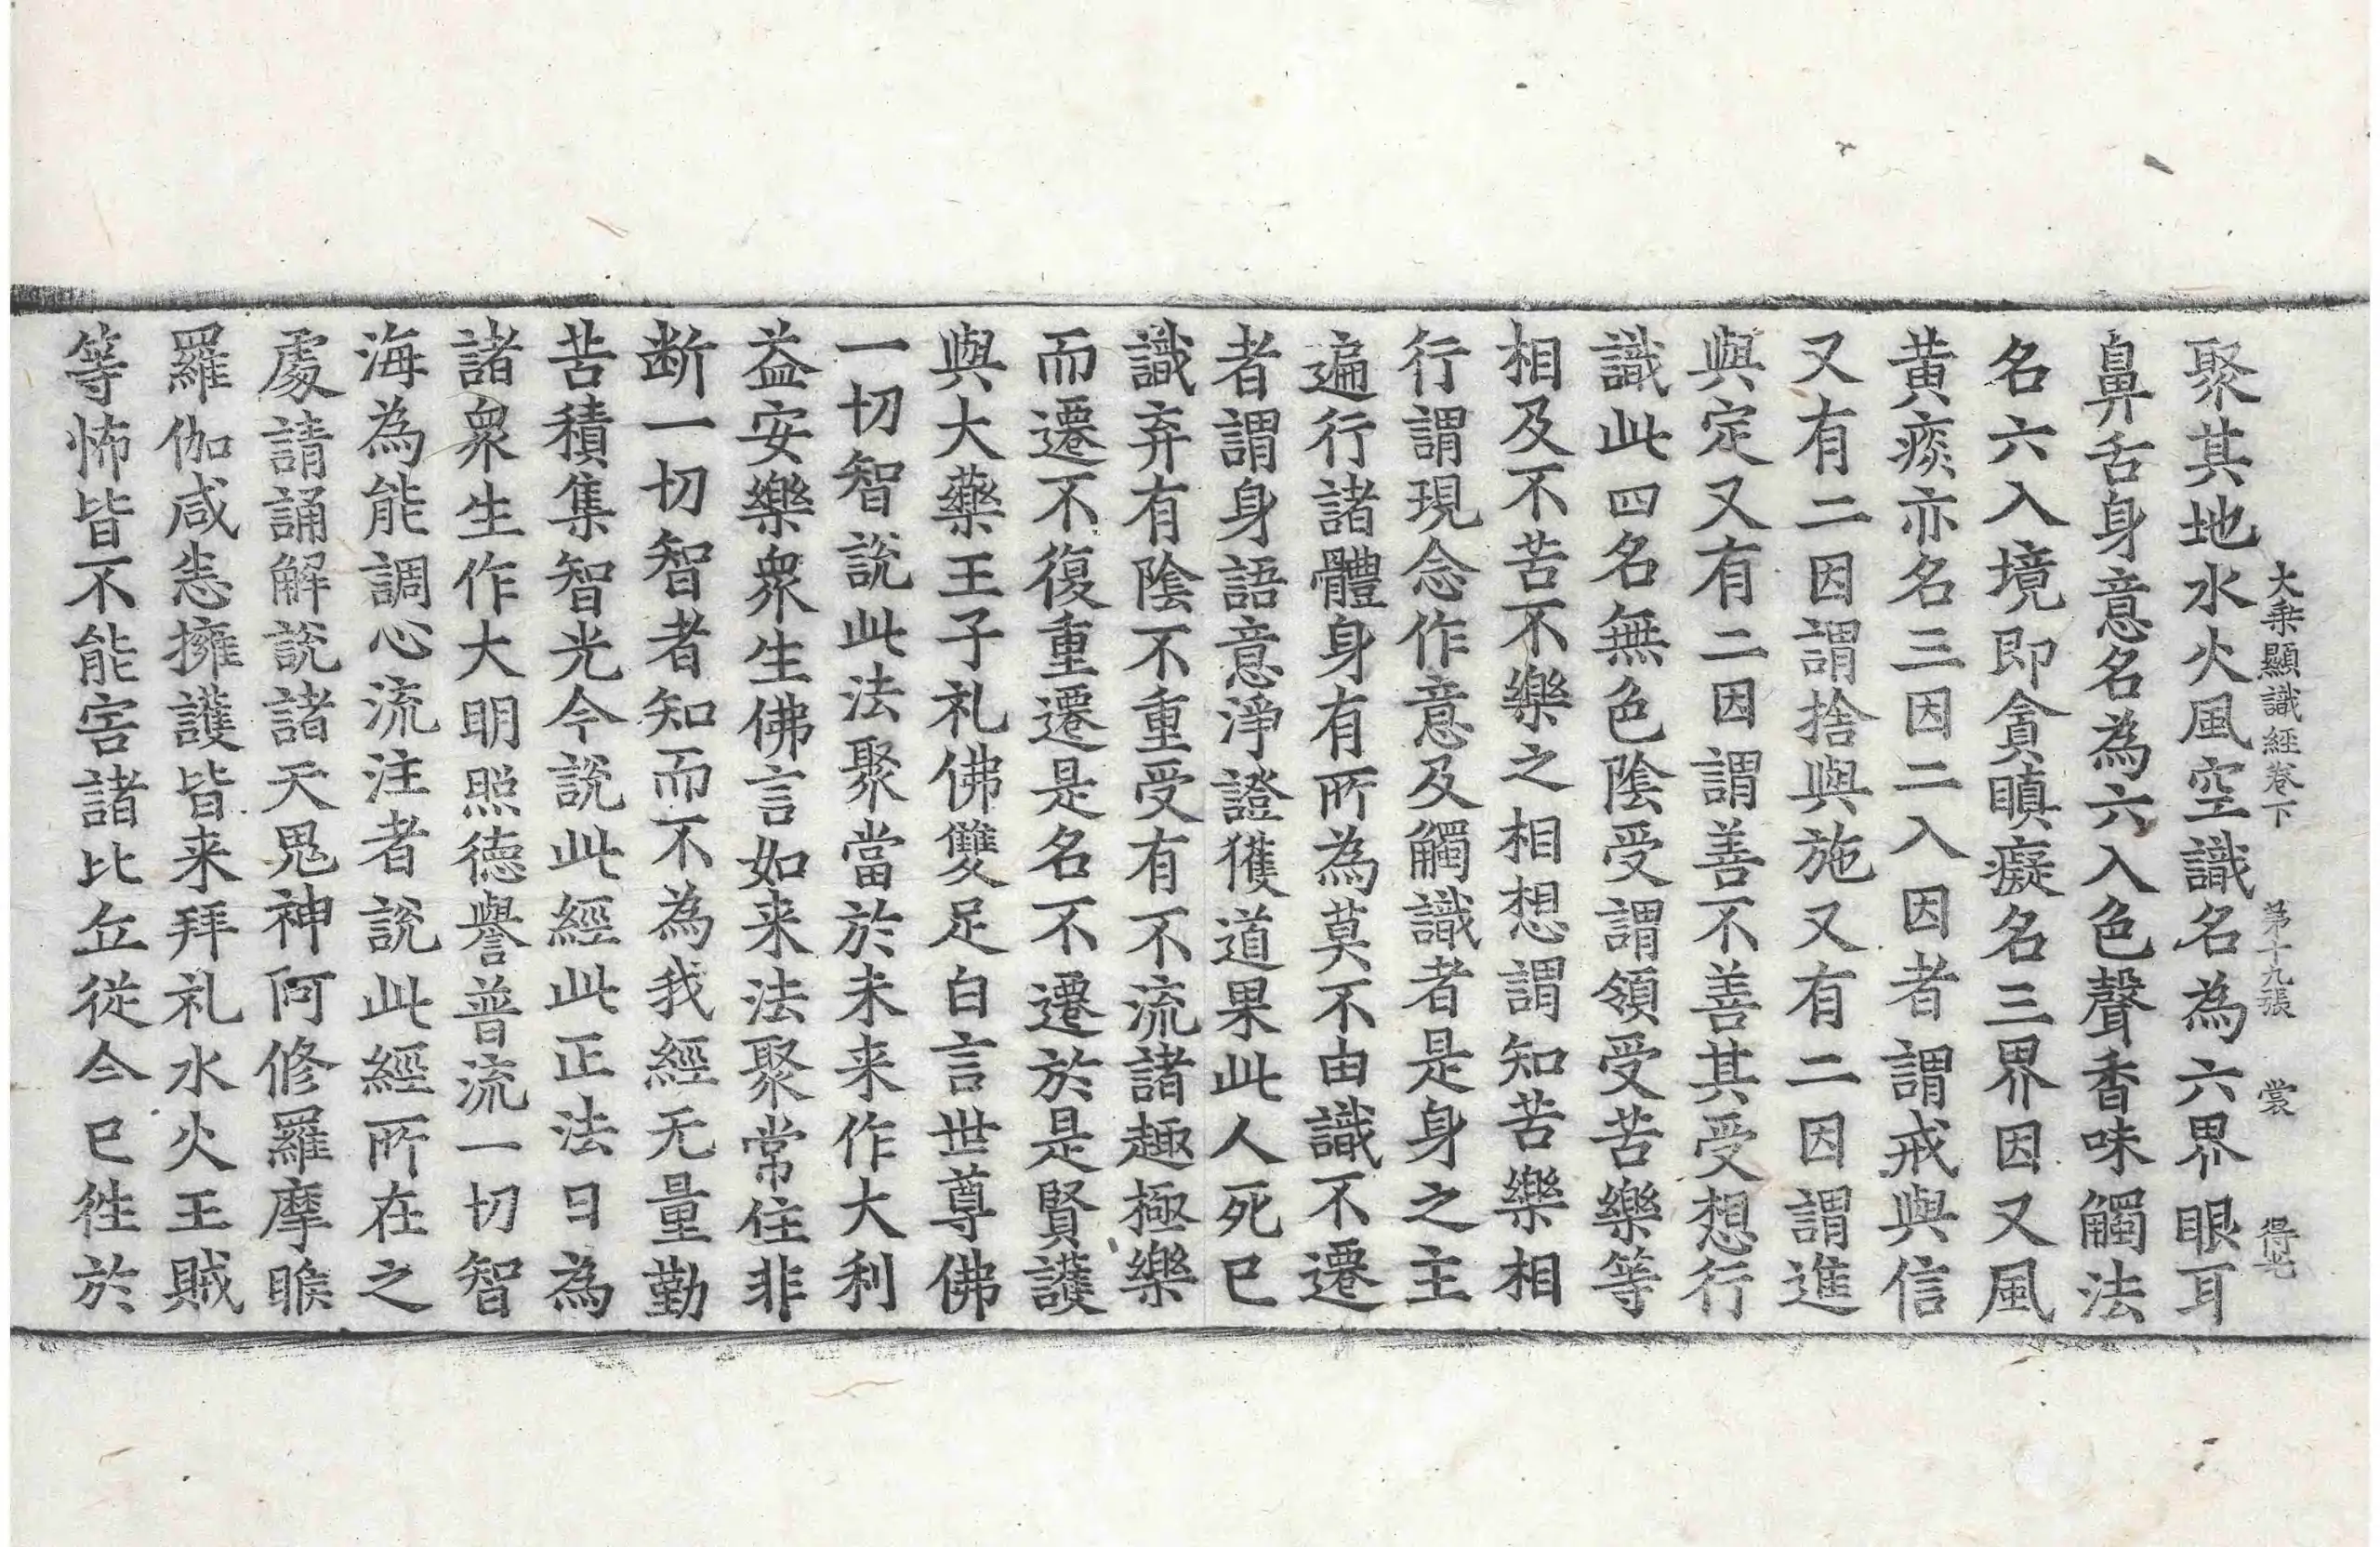 大乗顯識経卷下 第十九張 裳 得宅
聚其地水火風空識名為六界眼耳
鼻舌身意名為六入色聲香味觸法
名六入境即貪瞋癡名三界因又風
黄痰亦名三因二入因者謂戒與信
又有二因謂捨與施又有二因謂進
與定又有二因謂善不善其受想行
識此四名無色陰受謂領受苦樂等
相及不苦不樂之相想謂知苦樂相
行謂現念作意及觸識者是身之主
遍行諸體身有所為莫不由識不遷
者謂身語意淨證獲道果此人死已
識弃有陰不重受有不流諸趣極樂
而遷不復重遷是名不遷於是賢護
與大藥王子礼佛雙足白言世尊佛
一切智說此法聚當於未来作大利
益安樂衆生佛言如来法聚常住非
断一切智者知而不為我經无量勤
苦積集智光今說此經此正法日為
諸衆生作大明照德譽普流一切智
海為能調心流注者說此經所在之
處請誦解說諸天鬼神阿修羅摩睺
羅伽咸恙擁護皆来拜礼水火王賊
等怖皆不能害諸比丘從今已往於